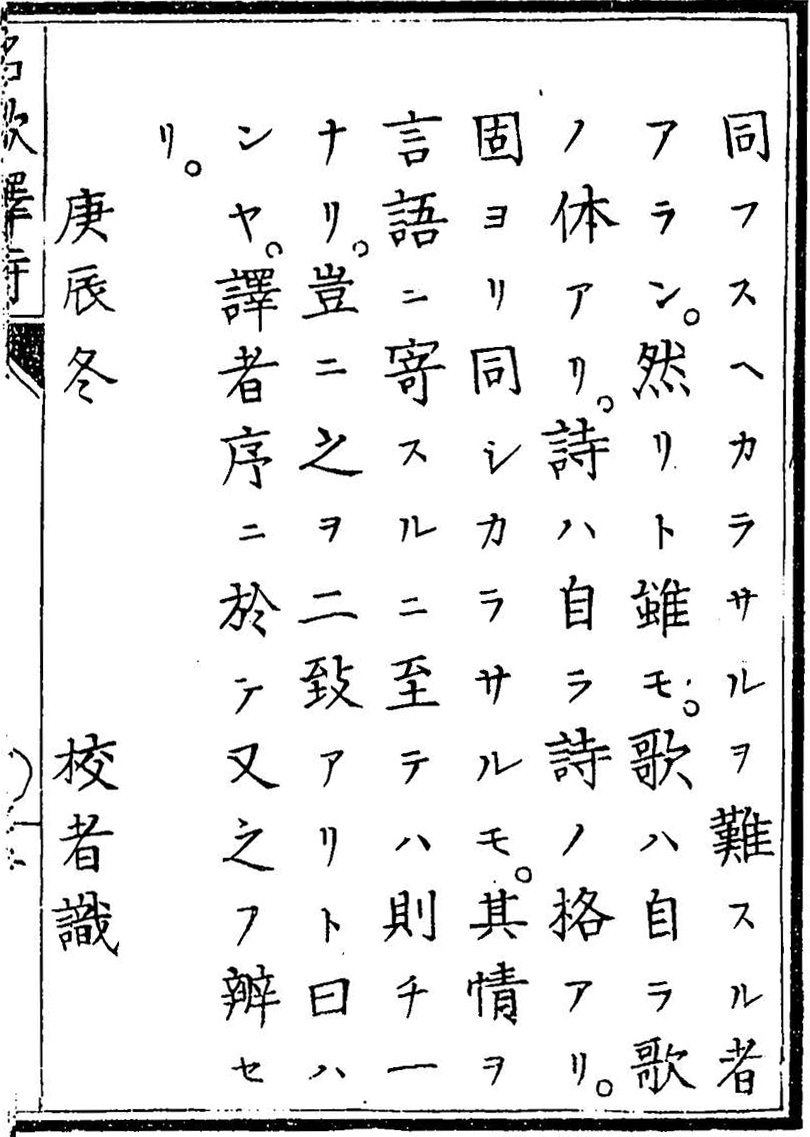 同フスヘカラサルヲ難スル者
アラン。然リト雖モ。歌ハ自ラ歌
ノ体アリ。詩ハ自ラ詩ノ格アリ。
固ヨリ同シカラサルモ。其情ヲ
言語ニ寄スルニ至テハ則チ一
ナリ。豈ニ之ヲ二致アリト曰ハ
ンヤ。譯者序ニ於テ又之フ辨セ
リ。
庚辰冬 校者識